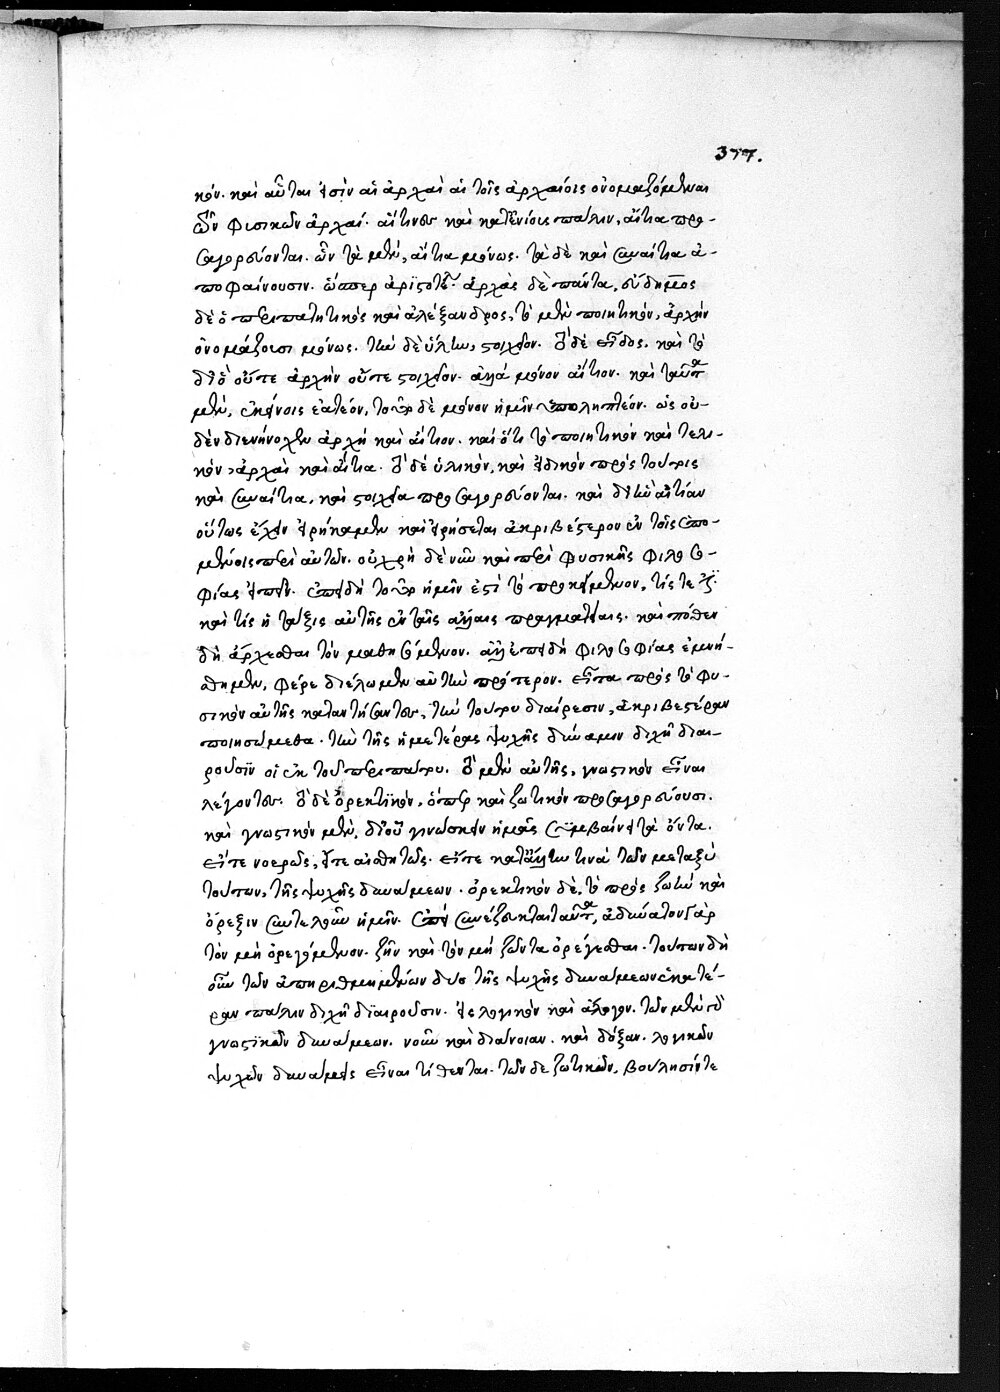 377.
κόν. καὶ αὗται εἰσὶν αἱ ἀρχαὶ αἱ τοῖς ἀρχαίοις ὀνομαζόμεναι
τῶν φυσικῶν ἀρχαί. αἵτινες καὶ κατ' ἐνίοις πάλιν, αἴτια προ-
σαγορεύονται. ὧν τὰ μὲν, αἴτια μόνως. τὰ δὲ καὶ συναίτια ἀ-
ποφαίνουσιν. ὥσπερ ἀριστοτέλης. ἀρχὰς δὲ πάντα, εὔδημος
δὲ ὁ περιπατητικὸς καὶ ἀλέξανδρος, τὸ μὲν ποιητικὸν, ἀρχὴν
ὀνομάζουσι μόνως. τὴν δὲ ὕλην, στοιχεῖον. τὸ δὲ εἶδος, καὶ τὸ
δι' ὃ οὔτε ἀρχὴν οὔτε στοιχεῖον. ἀλλὰ μόνον αἴτιον. καὶ ταῦτα
μὲν, ἐκείνοις ἐατέον, τοῦτο δὲ μόνον ἡμῖν ὑποληπτέον. ὡς οὐ-
δὲν διενήνοχεν ἀρχὴ καὶ αἴτιον. καὶ ὅτι τὸ ποιητικὸν καὶ τελι-
κὸν, ἀρχαὶ καὶ αἴτια. τὸ δὲ ὑλικὸν, καὶ εἰδικὸν πρὸς τούτοις
καὶ συναίτια, καὶ στοιχεῖα προσαγορεύονται. καὶ δι' ἣν αἰτίαν
οὕτως ἔχειν εἰρήκαμεν καὶ εἰρήσεται ἀκριβέστερον ἐν τοῖς ἑπο-
μένοις περὶ αὐτῶν. οὐ χρὴ δὲ νῦν καὶ περὶ φυσικῆς φιλοσο-
φίας εἰπεῖν. ἐπειδὴ τοῦτο ἡμῖν ἐστὶ τὸ προκείμενον, τίς τε
καὶ τίς ἡ τάξις αὐτῆς ἐν ταῖς ἄλλαις πραγματείαις. καὶ πόθεν
δὴ ἄρχεσθαι τὸν μαθησόμενον. ἀλλ' ἐπειδὴ φιλοσοφίας ἐμνή-
σθημεν, φέρε διέλωμεν αὐτὴν πρότερον. εἶτα πρὸς τὸ φυ-
σικὸν αὐτῆς καταντήσαντες, τὴν τούτου διαίρεσιν, ἀκριβεστέραν
ποιησώμεθα. τὴν τῆς ἡμετέρας ψυχῆς δύναμιν διχῆ διαι-
ροῦσιν οἱ ἐκ τοῦ περιπάτου. τὸ μὲν αὐτῆς, γνωστικὸν εἶναι
λέγοντες. τὸ δὲ ὀρεκτικὸν, ὅπερ καὶ ζωτικὸν προσαγορεύουσι.
καὶ γνωστικὸν μὲν, δι' οὗ γινώσκειν ἡμᾶς συμβαίνει τὰ ὄντα.
εἴτε νοερῶς, εἴτε αἰσθητῶς. εἴτε κατ' ἄλλην τινὰ τῶν μεταξὺ
τούτων, τῆς ψυχῆς δυνάμεων. ὀρεκτικὸν δὲ, τὸ πρὸς ζωὴν καὶ
ὄρεξιν συντελοῦν ἡμῖν. ἐπεὶ συνέζευκται ταῦτα, ἀδύνατον γὰρ
τὸν μὴ ὀρεγόμενον. ζῆν καὶ τὸν μὴ ζῶντα ὀρέγεσθαι. τούτων δὴ
οὖν τῶν ἀπηριθμημένων δύο τῆς ψυχῆς δυνάμεων ἑκατέ-
ραν πάλιν διχῆ διαιροῦσιν. εἰς λογικὸν καὶ ἄλογον. τῶν μὲν
γνωστικῶν δυνάμεων. νοῦν καὶ διάνοιαν. καὶ δόξαν. λογικῶν
ψυχῶν δυνάμεις εἶναι τίθενται. τῶν δὲ ζωτικῶν, βούλησίν τε